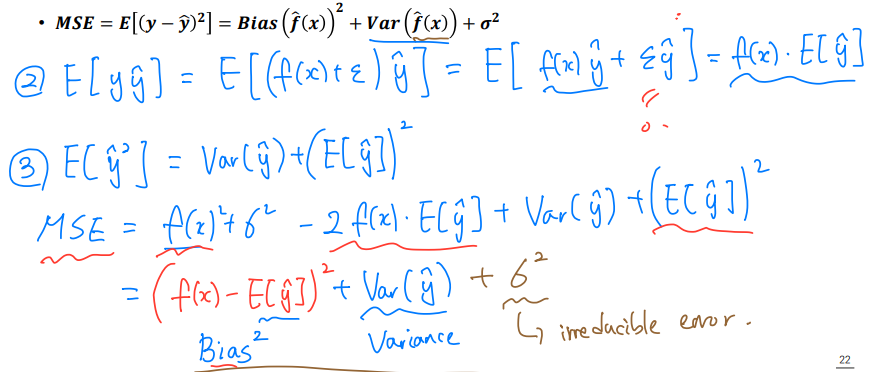 • MSE = E[(y − ŷ)²] = Bias(f̂(x))² + Var(f̂(x)) + σ²
② E[yŷ] = E[(f(x)+ε)ŷ] = E[f(x)ŷ + εŷ] = f(x)·E[ŷ]
0.
③ E[ŷ²] = Var(ŷ)+(E[ŷ])²
MSE = f(x)²+σ² - 2f(x)·E[ŷ] + Var(ŷ) + (E[ŷ])²
= (f(x) - E[ŷ])² + Var(ŷ) + σ²
Bias² Variance ↳ irreducible error.
22